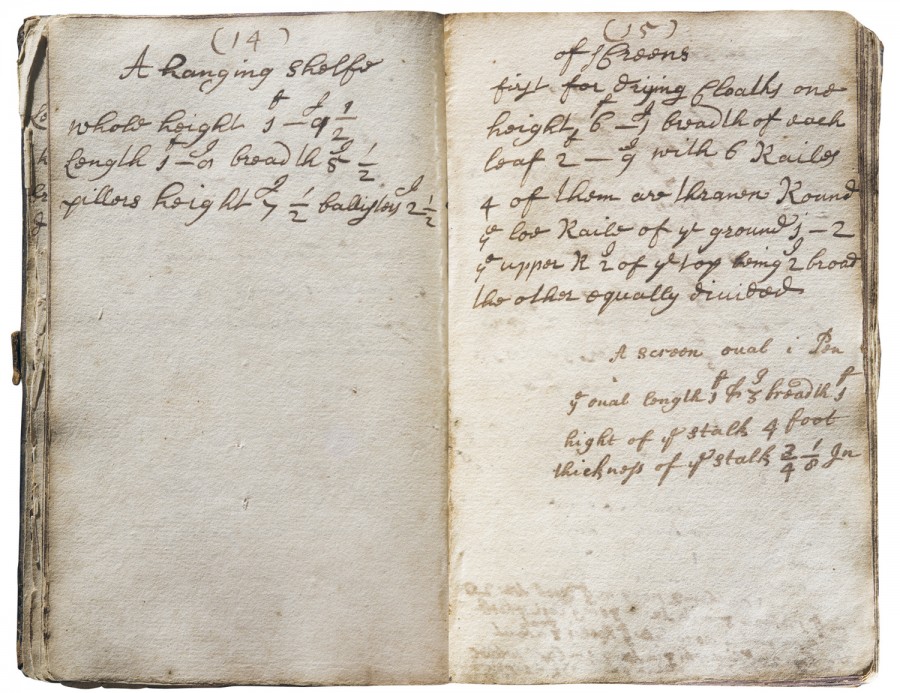 (14)
A hanging shelfe
whole height 1 f — 9 I 1/2
length 1 — 9 I breadth 5 I 1/2
pillers height 7 I 1/2 ballisters 2 I 1/2
(15)
of screens
first for drying Cloaths one
height 6 f — 1 I breadth of each
leaf 2 f — 9 I with 6 Railes
4 of them are thrawen Round
ye loe Raile of ye ground 1 — 2
ye upper R 2 I of ye top being 2 I broad
the other equally divided
A screen oual i Pen
ye oual length 1 f & 3 I breadth 1 f
hight of ye stalk 4 foot
thickness of ye stalk 3/4 1/8 In